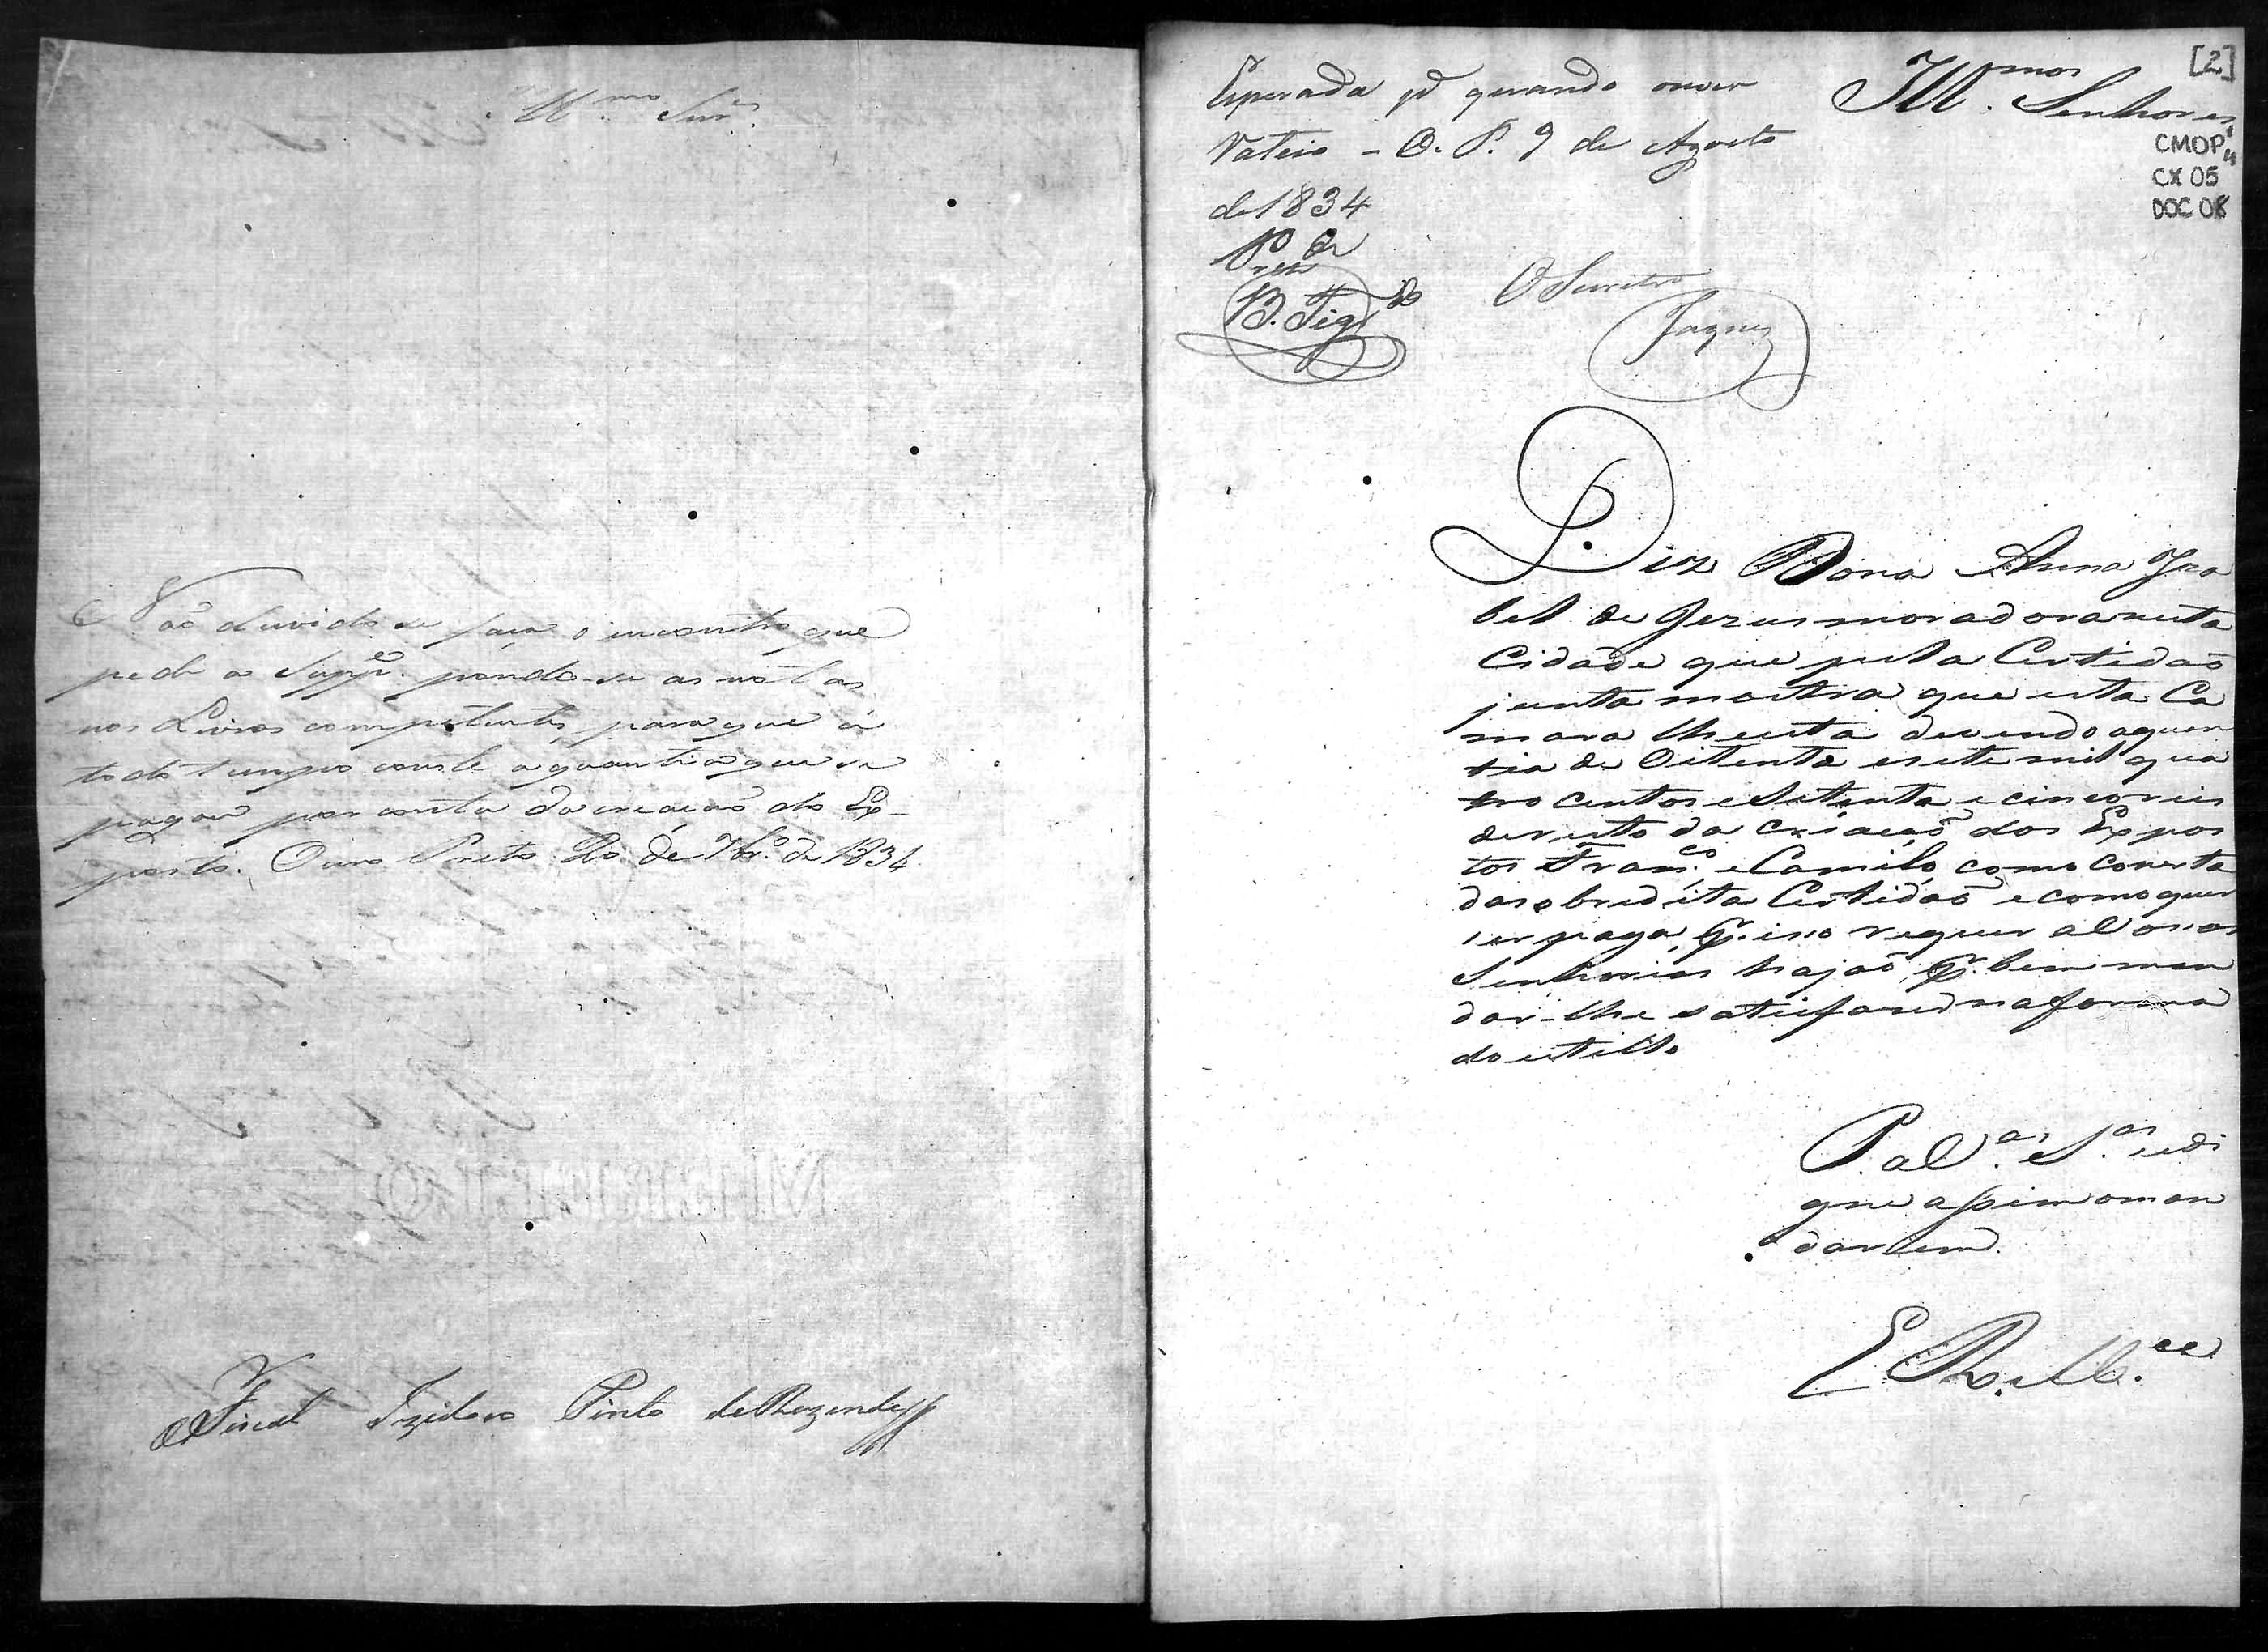 Ill.mo Snr.
Não duvido se faça o encontro que
pede a Supp.e pondo-se as notas
nos Livros competentes, para que a
todo tempo conste a quantia que se
pagou por conta da creação do Ex-
posto. Ouro Preto 20 de 7br.o de 1834
O Fiscal Izidoro Pinto de Rezende
[2]
Ill.mos Senhores
CMOP
CX 05
DOC 08
Esperada p.a quando ouver
Rateio - O. P. 9 de Agosto
de 1834
B. Fig.do
O Secretro
Jaques
Diz Dona Anna Iza
bel de Jezus moradora nesta
Cidade que pela Certidaõ
junta mostra que esta Ca
mara lhe esta devendo a quan
tia de Oitenta e sete mil qua
tro centos e Setenta e cinco reis
de resto da criaçaõ dos Expos
tos Fran.co e Camilo, como consta
da sobredita Certidaõ e como quer
ser paga, P.r isso requer a Vossas
Senhorias hajaõ, P.r bem man
dar-lhe satisfazer na forma
do estillo
P. a V.as S.as se di
gne assim o man
darem.
E R. M.ce